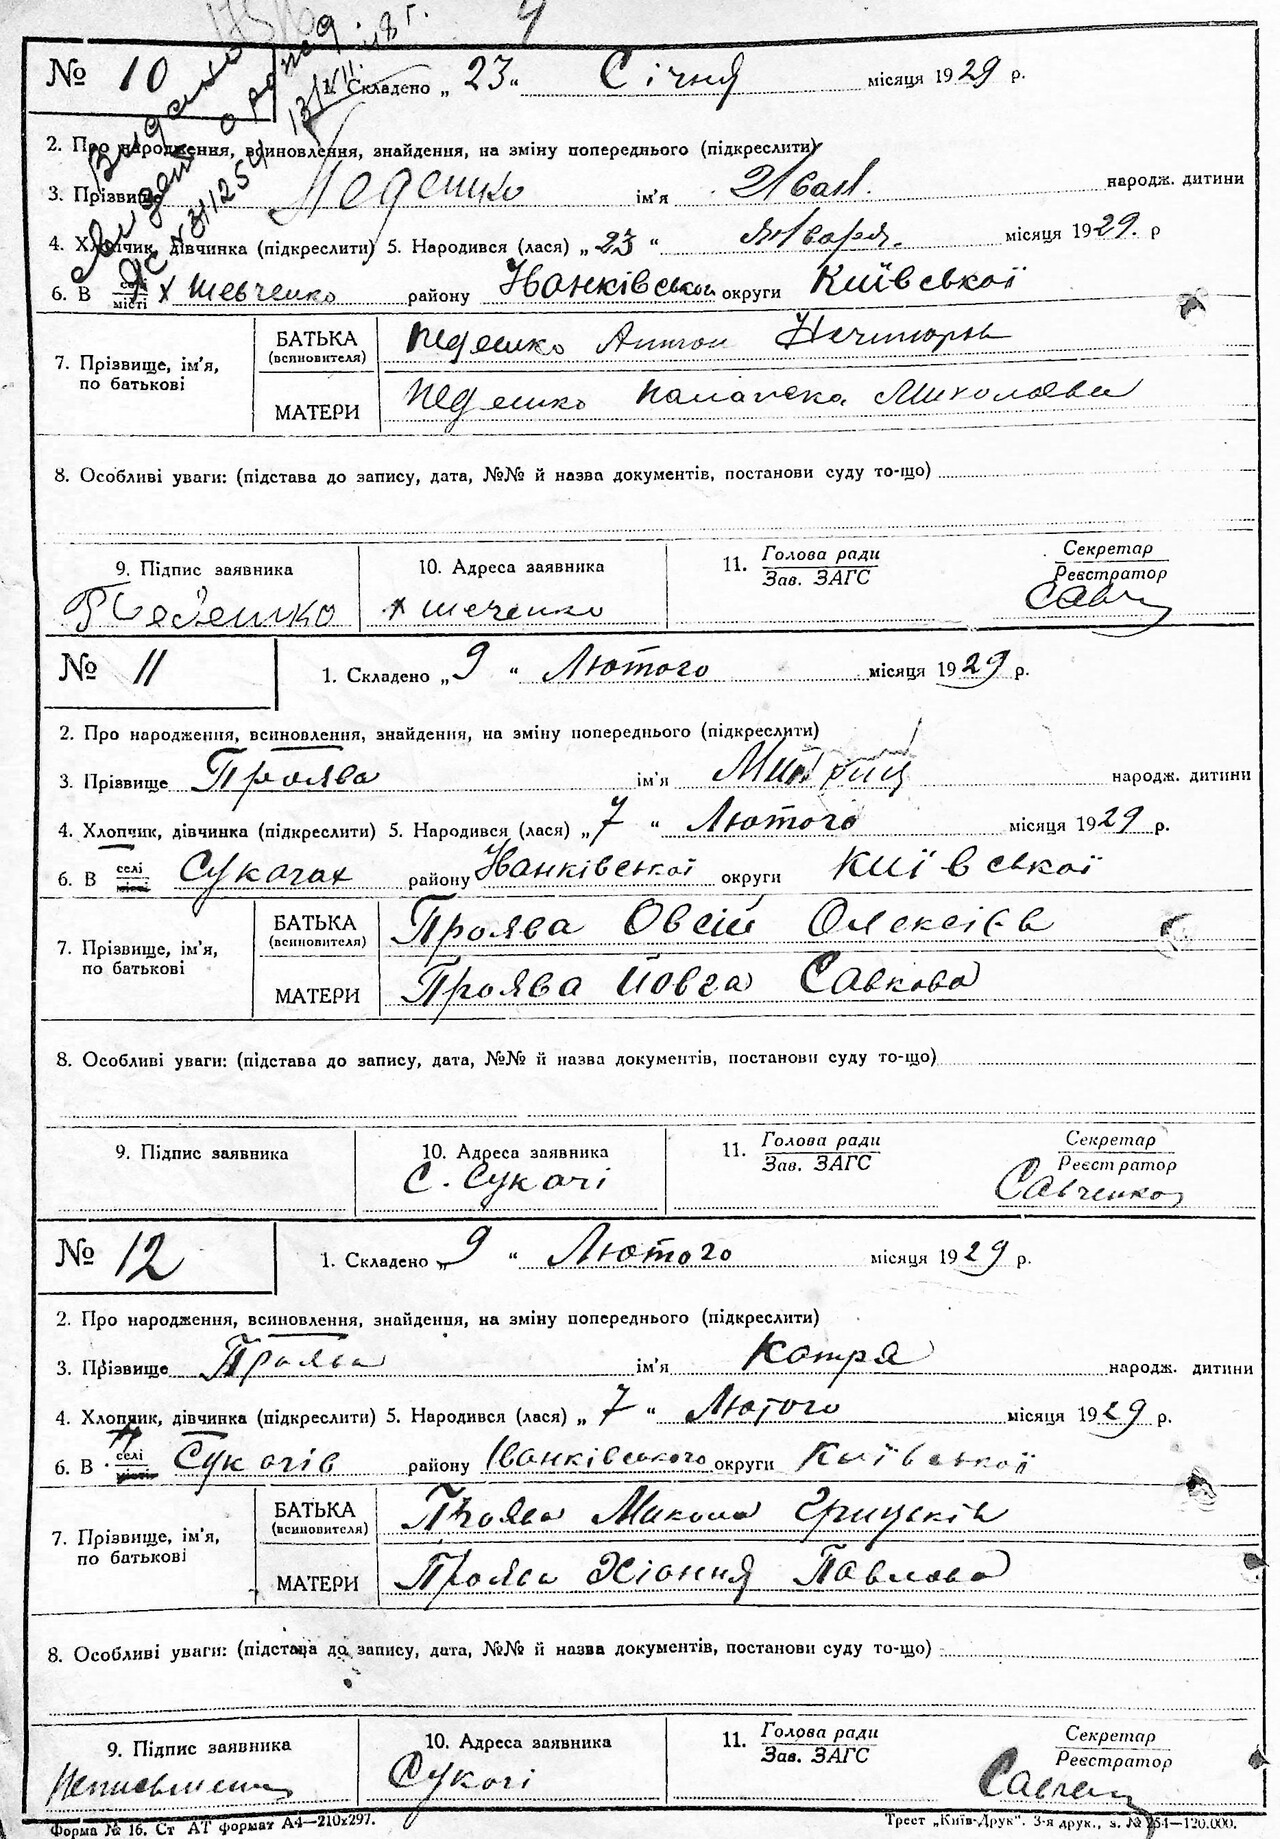 4
Видано
свидет о рожд
ЯЄ № 311254 13/VII.48 г.
№ 10 1. Складено „ 23 “ Січня місяця 1929 р.
2. Про народження, всиновлення, знайдення, на зміну попереднього (підкреслити)
3. Прізвище Педешко ім'я Иван народж. дитини
4. Хлопчик, дівчинка (підкреслити) 5. Народився (лася) „ 23 “ Января місяця 1929. р
6. В селі місті х Шевченко району Іванківської округи Київської
7. Прізвище, ім'я, по батькові
БАТЬКА (всиновителя) Педешко Антон
МАТЕРИ Педешко Палажка Миколаева
8. Особливі уваги: (підстава до запису, дата, №№ й назва документів, постанови суду то-що)
9. Підпис заявника 10. Адреса заявника 11. Голова ради Зав. ЗАГС Секретар Реєстратор
Педешко х Шеченко Савч
№ 11 1. Складено „ 9 “ Лютого місяця 1929 р.
2. Про народження, всиновлення, знайдення, на зміну попереднього (підкреслити)
3. Прізвище Проява ім'я народж. дитини
4. Хлопчик, дівчинка (підкреслити) 5. Народився (лася) „ 7 “ Лютого місяця 1929 р.
6. В селі місті Сукачах району Іванківської округи Київської
7. Прізвище, ім'я, по батькові
БАТЬКА (всиновителя) Проява Овсій Олексієв
МАТЕРИ Проява Йовга Савкова
8. Особливі уваги: (підстава до запису, дата, №№ й назва документів, постанови суду то-що)
9. Підпис заявника 10. Адреса заявника 11. Голова ради Зав. ЗАГС Секретар Реєстратор
С. Сукачі Савченко
№ 12 1. Складено „ 9 “ Лютого місяця 1929 р.
2. Про народження, всиновлення, знайдення, на зміну попереднього (підкреслити)
3. Прізвище Проява ім'я Котря народж. дитини
4. Хлопчик, дівчинка (підкреслити) 5. Народився (лася) „ 7 “ Лютого місяця 1929 р.
6. В селі місті Сукачів району Іванківського округи Київської
7. Прізвище, ім'я, по батькові
БАТЬКА (всиновителя) Проява Микола Грицьків
МАТЕРИ Проява Хіання Павлова
8. Особливі уваги: (підстава до запису, дата, №№ й назва документів, постанови суду то-що)
9. Підпис заявника 10. Адреса заявника 11. Голова ради Зав. ЗАГС Секретар Реєстратор
Сукачі
Форма № 16. Ст АТ формат А4—210х297. Трест „Київ-Друк“. 3-я друк., з. № 254—120.000.